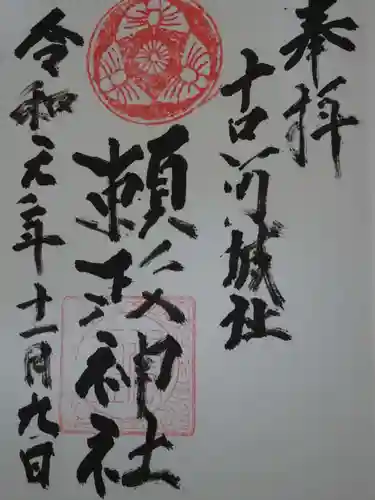 奉拝
古河城址
頼政神社
令和元年十一月九日